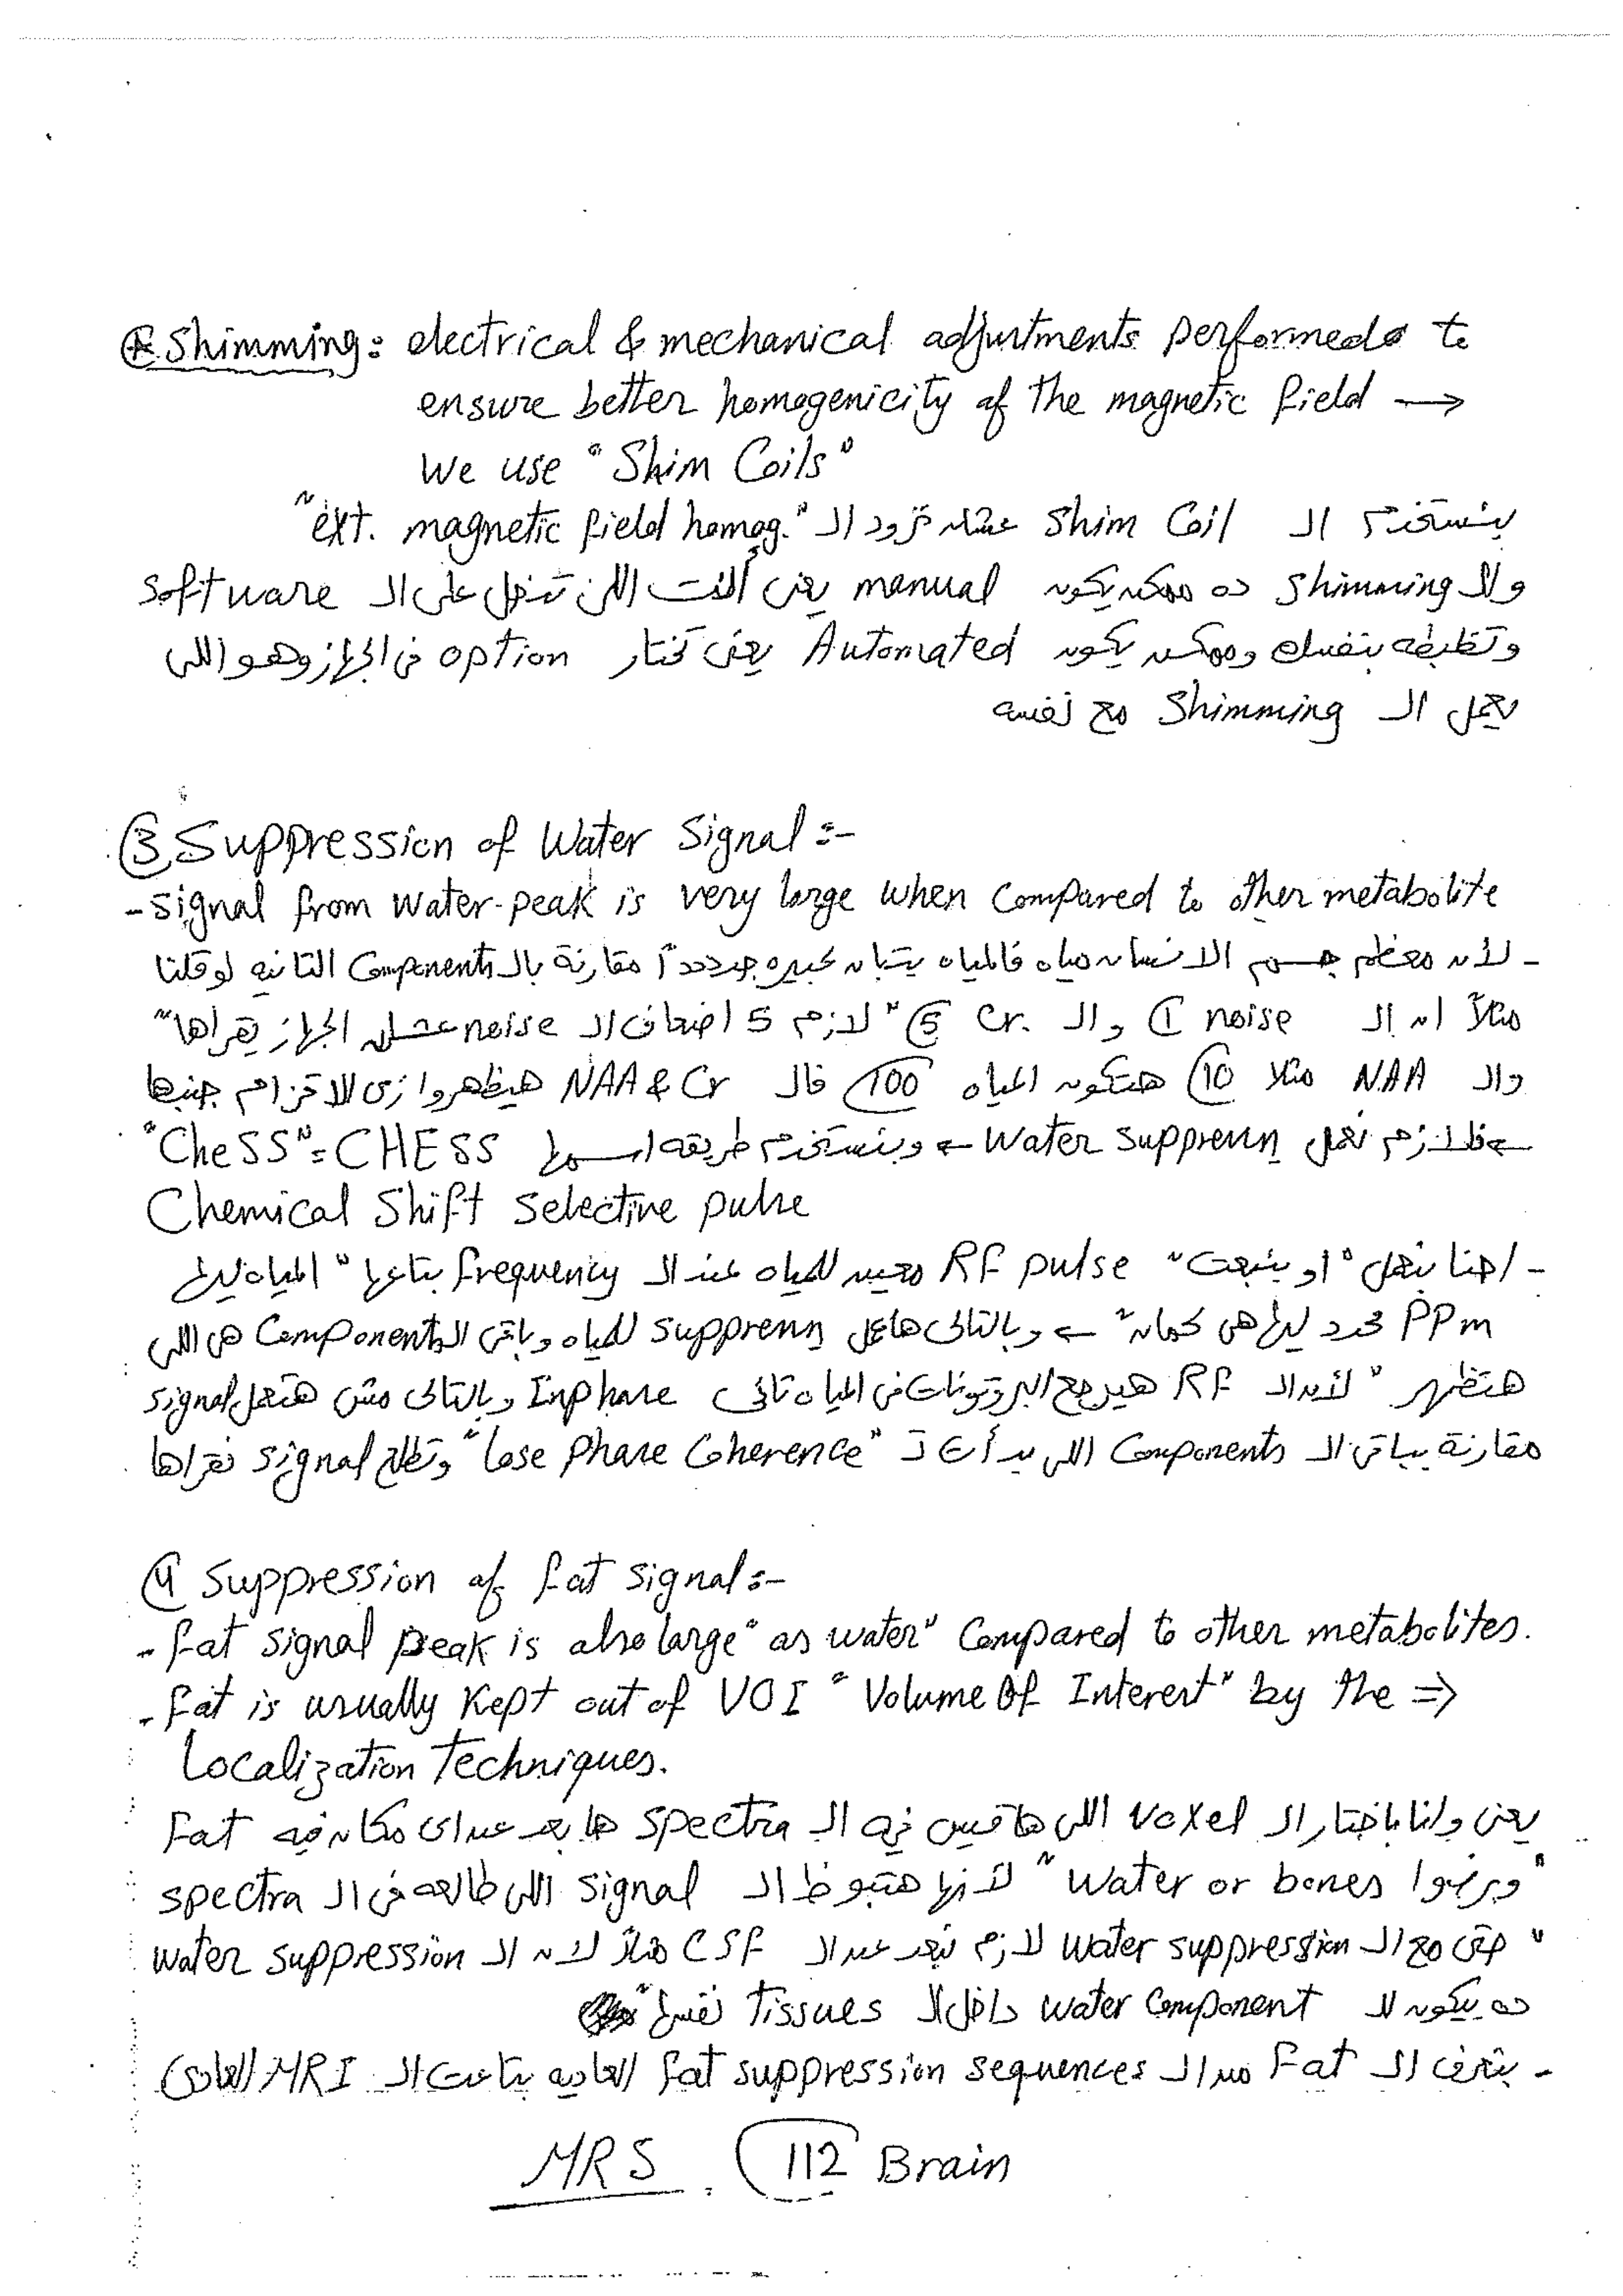 Shimming: electrical & mechanical adjustments performed to
ensure better homogenicity of the magnetic field →
We use "Shim Coils"
بنستخدم الـ Shim Coil عشان تزود الـ "ext. magnetic field homog."
والـ Shimming ده ممكن يكون manual يعنى أنت اللى تدخل على الـ software
وتظبطه بنفسك وممكن يكون Automated يعنى تختار option فى الجهاز وهو اللى
يعمل الـ Shimming مع نفسه
③ Suppression of Water Signal :-
- Signal from water-peak is very large when compared to other metabolite
- لأن معظم جسم الانسان مياه فالمياه بتبان كبيره جدددداً مقارنة بالـ Components التانيه لو قلنا
مثلاً ان الـ noise ① والـ Cr. ⑤ "لازم 5 اضعاف الـ noise عشان الجهاز يقراها"
والـ NAA مثلا ⑩ هتكون المياه 100 فالـ NAA & Cr هيظهروا زى الاقزام جنبها
← فلازم نعمل Water suppresn ← وبنستخدم طريقه اسمها CHESS = "CheSS"
Chemical Shift Selective pulse
- احنا بنعمل "او بنبعت" RF pulse معين للمياه عند الـ frequency بتاعها "المياه ليها
PPm محدد ليها هى كمان" ← وبالتالى هاعمل suppresn للمياه وباقى الـ Components هى اللى
هتظهر "لأن الـ RF هيرجع البروتونات فى المياه تانى Inphase وبالتالى مش هتعمل signal
مقارنة بباقى الـ Components اللى بدأت تـ "lose phase coherence" وتطلع signal نقراها
④ Suppression of fat signal :-
- fat signal peak is also large "as water" Compared to other metabolites.
- fat is usually kept out of VOI "Volume Of Interest" by the ⇒
Localization Techniques.
يعنى وانا باختار الـ voxel اللى هاقيس فيه الـ spectra هابعد عن اى مكان فيه fat
"وبرضوا water or bones" لأنها هتبوظ الـ signal اللى طالعه فى الـ spectra
"حتى مع الـ water suppression لازم نبعد عن الـ CSF مثلاً لان الـ water suppression
ده بيكون للـ water component داخل الـ tissues نفسها"
- بنعرف الـ fat من الـ fat suppression sequences العاديه بتاعت الـ MRI العادى
MRS 112 Brain